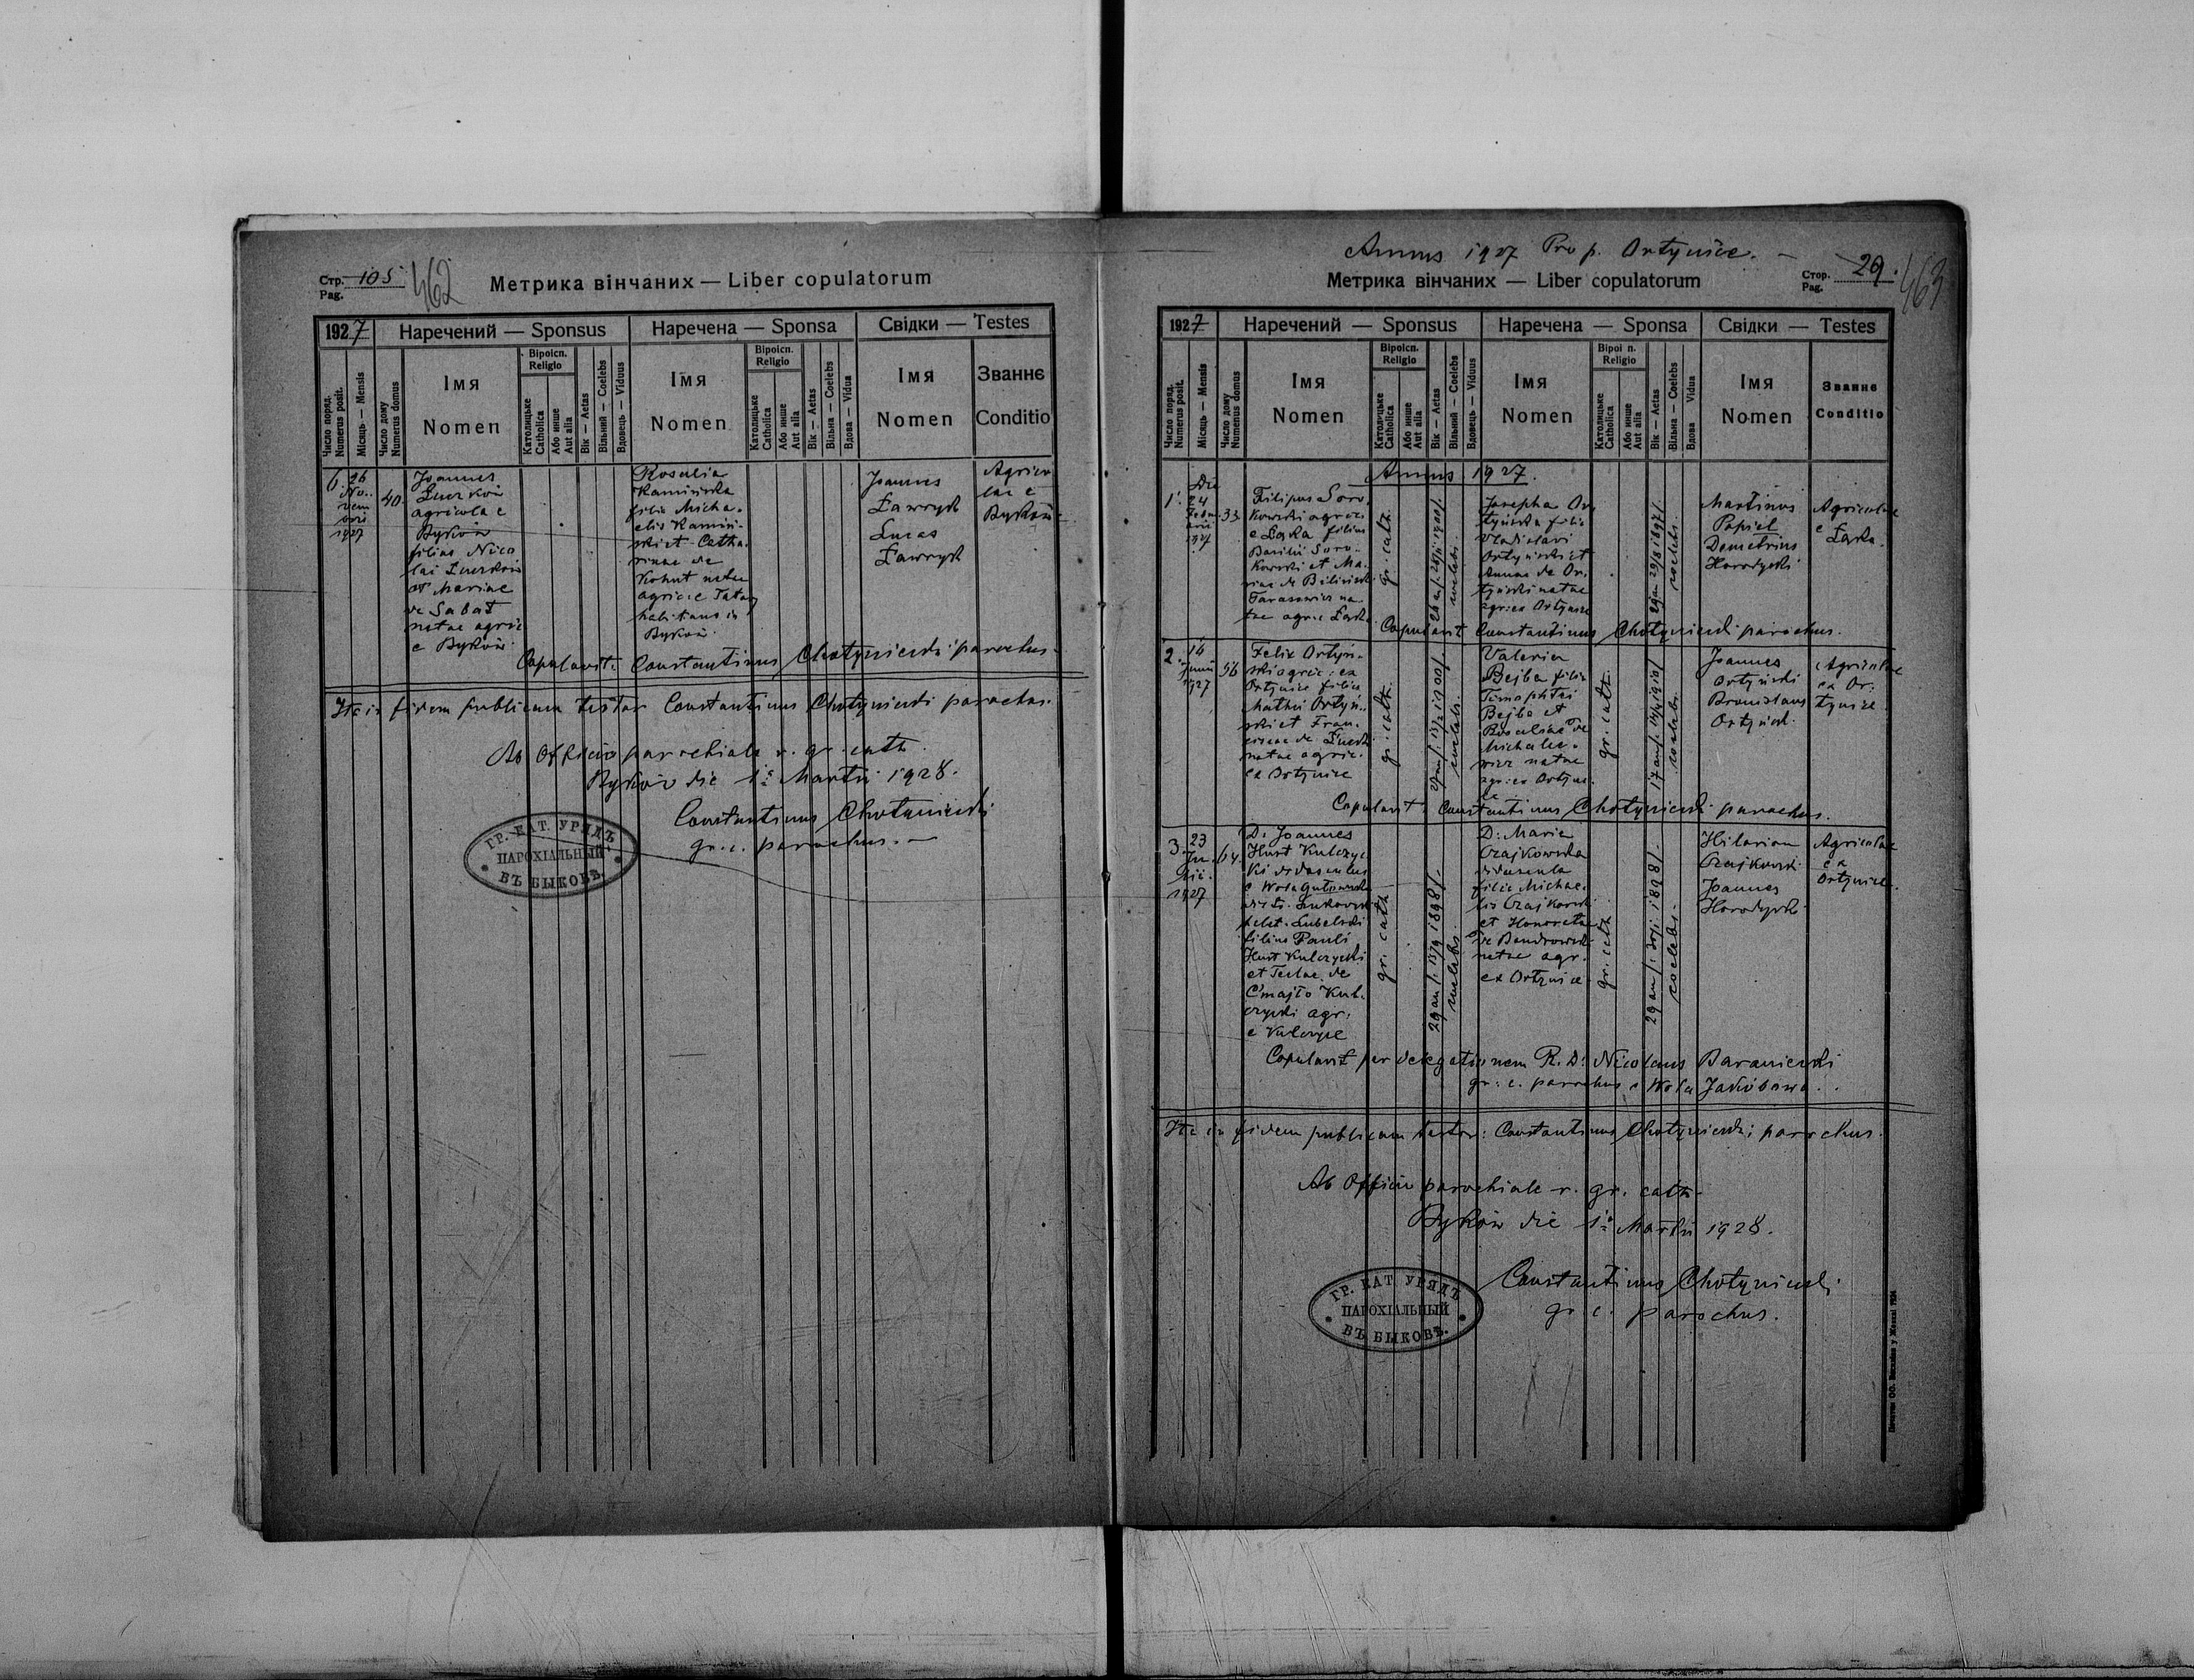 Стр. 105
Pag.
462
Метрика вінчаних — Liber copulatorum
1927
Наречений — Sponsus
Наречена — Sponsa
Свідки — Testes
Число поряд.
Numerus posit.
Місяць — Mensis
Число дому
Numerus domus
Імя
Nomen
Віроісп.
Religio
Католицьке
Catholica
Або инше
Aut alia
Вік — Aetas
Вільний — Coelebs
Вдовець — Viduus
Імя
Nomen
Віроісп.
Religio
Католицьке
Catholica
Або инше
Aut alia
Вік — Aetas
Вільна — Coelebs
Вдова — Vidua
Імя
Nomen
Званнє
Conditio
6.
26
No..
vem
bris
1927
40.
Joannes
agricola e
Byków
filius Nico
lai
et Mariae
de Sabat
natae agric
e Byków
Rosalia
Kamińska
filia Micha.
elis Kamiń-
ski et Catha.
rinae de
Kohut natae
agric. e
habitans in
Byków.
Joannes
Ławryk
Lucas
Ławryk
Agrico
lae e
Byków.
Copulavit: Constantinus Chotyniecki parochus.
Ita in fidem publicam testor Constantinus Chotyniecki parochus.
Ab Officio parochiale r. gr. cath.
Byków die 1a Martii 1928.
Constantinus Chotyniecki
gr. c. parochus. —
ГР. КАТ. УРЯДЪ
ПАРОХІАЛЬНЫЙ
ВЪ БЫКОВѢ.
Annus 1927 Pro p. Ortynice. —
Метрика вінчаних — Liber copulatorum
Стор. 29.
Pag.
463
1927
Наречений — Sponsus
Наречена — Sponsa
Свідки — Testes
Число поряд.
Numerus posit.
Місяць — Mensis
Число дому
Numerus domus
Імя
Nomen
Віроісп.
Religio
Католицьке
Catholica
Або инше
Aut alia
Вік — Aetas
Вільний — Coelebs
Вдовець — Viduus
Імя
Nomen
Віроі п.
Religio
Католицьке
Catholica
Або инше
Aut alia
Вік — Aetas
Вільна — Coelebs
Вдова Vidua
Імя
Nomen
Званнє
Conditio
Annus 1927.
1.
Die
24
1927
33.
Filipus Soro.
kowski agric.
e Łąka filius
Basilii Soro-
kowski et Ma.
riae de Biliński
Tarasowicz na.
tae agric. Łąka.
gr. cath.
coelebs.
Josepha Or.
tyńska filia
Vladislavi
Ortyński et
Annae de Or.
tyński natae
agric. ex Ortynice
coelebs.
Martinus
Popiel
Demetrius
Horodyski
Agricolae
e Łąka.
Copulavit Constantinus Chotyniecki parochus.
2.
16
Junii
1927
56
Felix Ortyń-
ski agric. ex
Ortynice filius
Mathei Ortyń..
ski et Fran.
ciscae de
natae agric.
ex Ortynice
gr. cath.
coelebs.
Valeria
Bejba filia
Timophtei
Bejba et
Rosaliae de
Michale.
wicz natae
agric. ex Ortyni.
ce
gr. cath.
coelebs.
Joannes
Ortyński
Bronislaus
Ortyński.
Agricolae
ex Or.
tynice
Copulavit: Constantinus Chotyniecki parochus.
3.
23
1927
64.
D. Joannes
Hust Kulczyc
ki
filius Pauli
Hust Kulczycki
et Teclae de
Cmajło Kul.
czycki agr.
e Kulczyce
gr. cath
29 an/. 13/9 1898/.
coelebs.
D. Maria
Czajkowska
filia Michae.
lis Czajkowski
et Honorata
de Bandrowski
natae agr.
ex Ortynice
gr. cath
coelebs.
Hilarion
Czajkowski
Joannes
Horodyski
Agricolae
ex
Ortynice.
Copulavit per delegationem R. D. Nicolaus Baraniecki
gr. c. parochus e Wola Jakóbowa..
Ita in fidem publicam testor: Constantinus Chotyniecki parochus.
Ab Officio parochiale r. gr. cath.
Byków die 1a Martii 1928.
Constantinus Chotyniecki.
gr. c. parochus.
ГР. КАТ. УРЯДЪ
ПАРОХІАЛЬНЫЙ
ВЪ БЫКОВѢ.